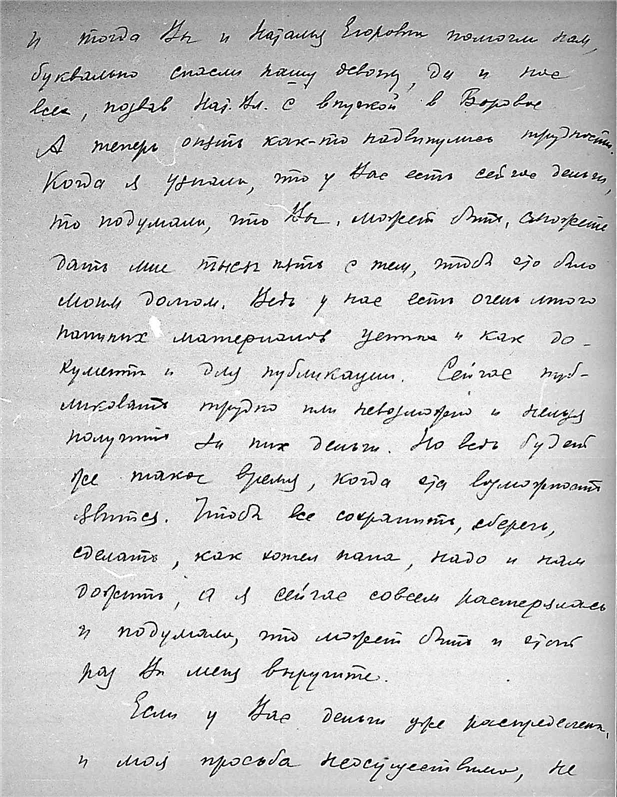 и тогда Вы и Наталья Егоровна помогли нам,
буквально спасли нашу девочку, да и нас
всех, позвав Нат. Вл. с внучкой в Боровое
А теперь опять как-то надвинулись трудности.
Когда я узнала, что у Вас есть сейчас деньги,
то подумала, что Вы, может быть, сможете
дать мне тысяч пять с тем, чтобы это было
моим долгом. Ведь у нас есть очень много
папиных материалов ценных и как до-
кументы и для публикации. Сейчас пуб-
ликовать трудно или невозможно и нельзя
получить за них деньги. Но ведь будет
же такое время, когда эта возможность
явится. Чтобы все сохранить, сберечь,
сделать, как хотел папа, надо и нам
дожить, а я сейчас совсем растерялась
и подумала, что может быть и этот
раз Вы меня выручите.
Если у Вас деньги уже распределены,
и моя просьба неосуществима, не